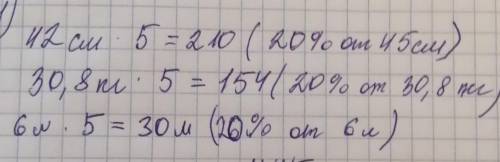 42 см · 5 = 210 ( 20% от 45см)
30,8кг · 5 = 154( 20% от 30,8 кг)
6м · 5 = 30м (20% от 6м)